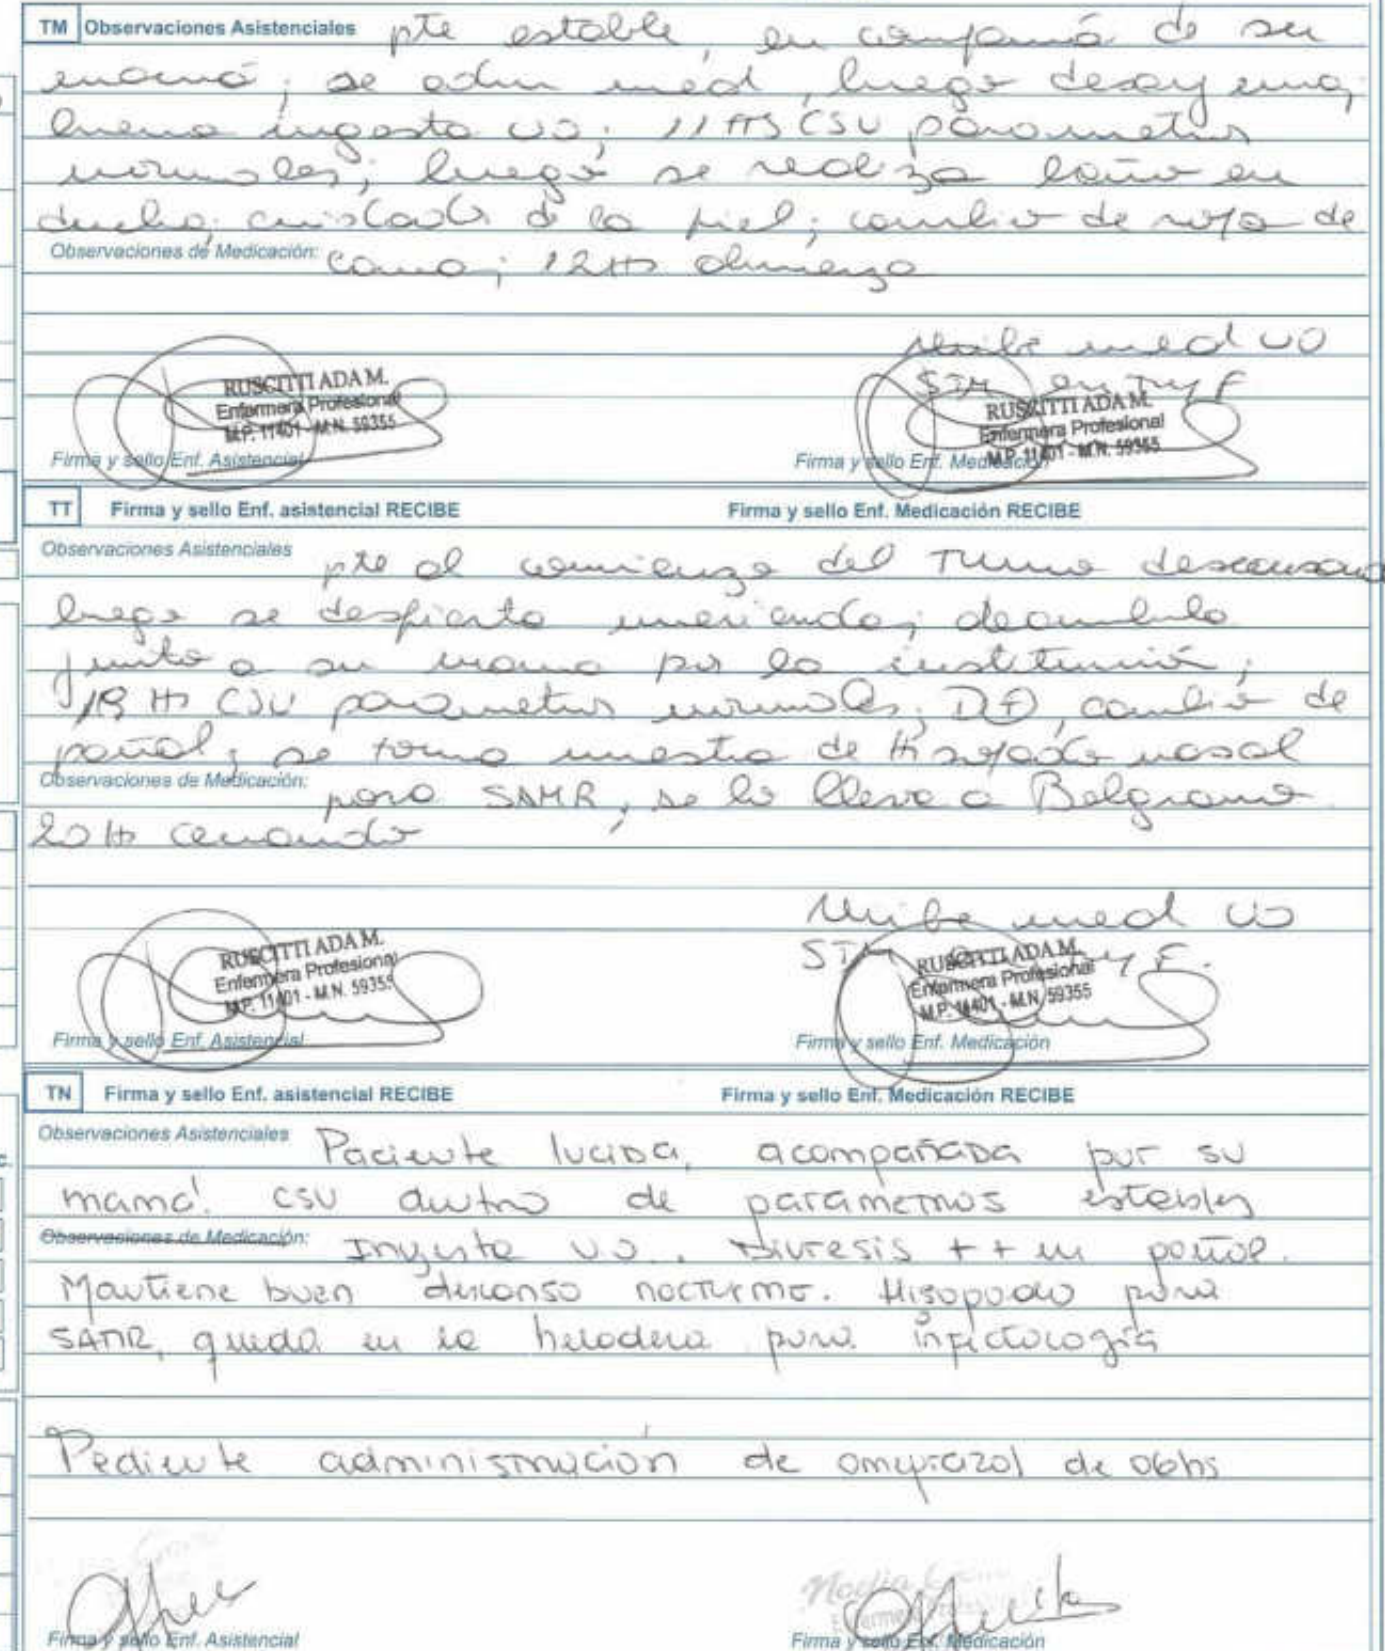 TM Observaciones Asistenciales pte estable, en compañía de su
mamá; se adm med, luego desayuna,
buena ingesta VO; 11 Hs CSV parametros
normales; luego se realiza baño en
ducha; cuidado de la piel; cambio de ropa de
Observaciones de Medicación: cama; 12 Hs almuerza
recibe med VO
STM en TM y F
RUSCITTI ADA M.
Enfermera Profesional
M.P. 11401 - M.N. 59355
Firma y sello Enf. Asistencial
RUSCITTI ADA M.
Enfermera Profesional
M.P. 11401 - M.N. 59355
Firma y sello Enf. Medicación
TT Firma y sello Enf. asistencial RECIBE Firma y sello Enf. Medicación RECIBE
Observaciones Asistenciales pte al comienzo del Turno descansando
luego se despierta merienda; deambula
junto a su mama por la institución;
19 Hs CSV parametros normales; D(+), cambio de
pañal; se toma muestra de Hisopado nasal
Observaciones de Medicación: para SAMR, se lo lleva a Belgrano
20 Hs cenando
recibe med VO
STM y F.
RUSCITTI ADA M.
Enfermera Profesional
M.P. 11401 - M.N. 59355
Firma y sello Enf. Asistencial
RUSCITTI ADA M.
Enfermera Profesional
M.P. 11401 - M.N. 59355
Firma y sello Enf. Medicación
TN Firma y sello Enf. asistencial RECIBE Firma y sello Enf. Medicación RECIBE
Observaciones Asistenciales Paciente lucida, acompañada por su
mamá. CSV dentro de parametros estables
Observaciones de Medicación: Ingesta V.O. Diuresis ++ en pañal.
Mantiene buen descanso nocturno. Hisopado para
SAMR, queda en la heladera para infectología
Pediente administración de omeprazol de 06hs
Firma y sello Enf. Asistencial
Nadia
Firma y sello Enf. Medicación